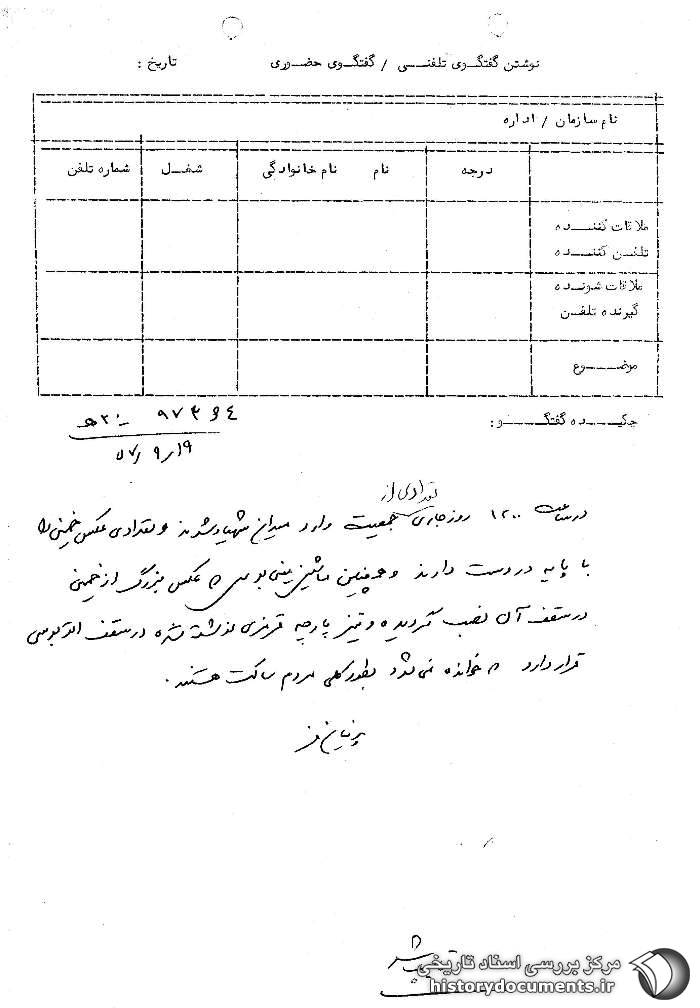 نوشتن گفتگوی تلفنی / گفتگوی حضوری تاریخ :
نام سازمان / اداره
درجه نام نام خانوادگی شغل شماره تلفن
ملاقات کننده
تلفن کننده
ملاقات شونده
گیرنده تلفن
موضوع
چکیده گفتگو:
۵۷/۹/۱۹
تعدادی از
در ساعت ۱۲۰۰ روز جاری جمعیت وارد میدان شهیاد شدند و تعدادی عکس خمینی را
با پایه در دست دارند و همچنین ماشین مینی بوسی که عکس بزرگ از خمینی
در سقف آن نصب گردیده و نیز پارچه قرمزی نوشته شده در سقف اتوبوسی
قرار دارد که خوانده نمی شود بطور کلی مردم ساکت هستند.
مرکز بررسی اسناد تاریخی
historydocuments.ir